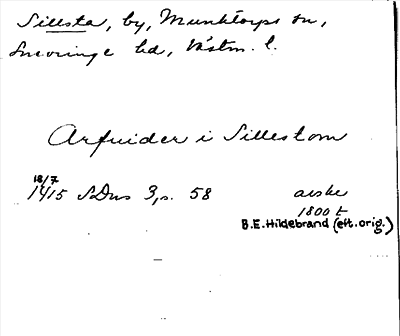 Sillsta, by, Munktorps sn,
Snevringe hd, Västm. l.
Arfuider i Sillestom
18/7
1415 SDns 3, s. 58 avskr
1800 t
B.E.Hildebrand (eft. orig.)